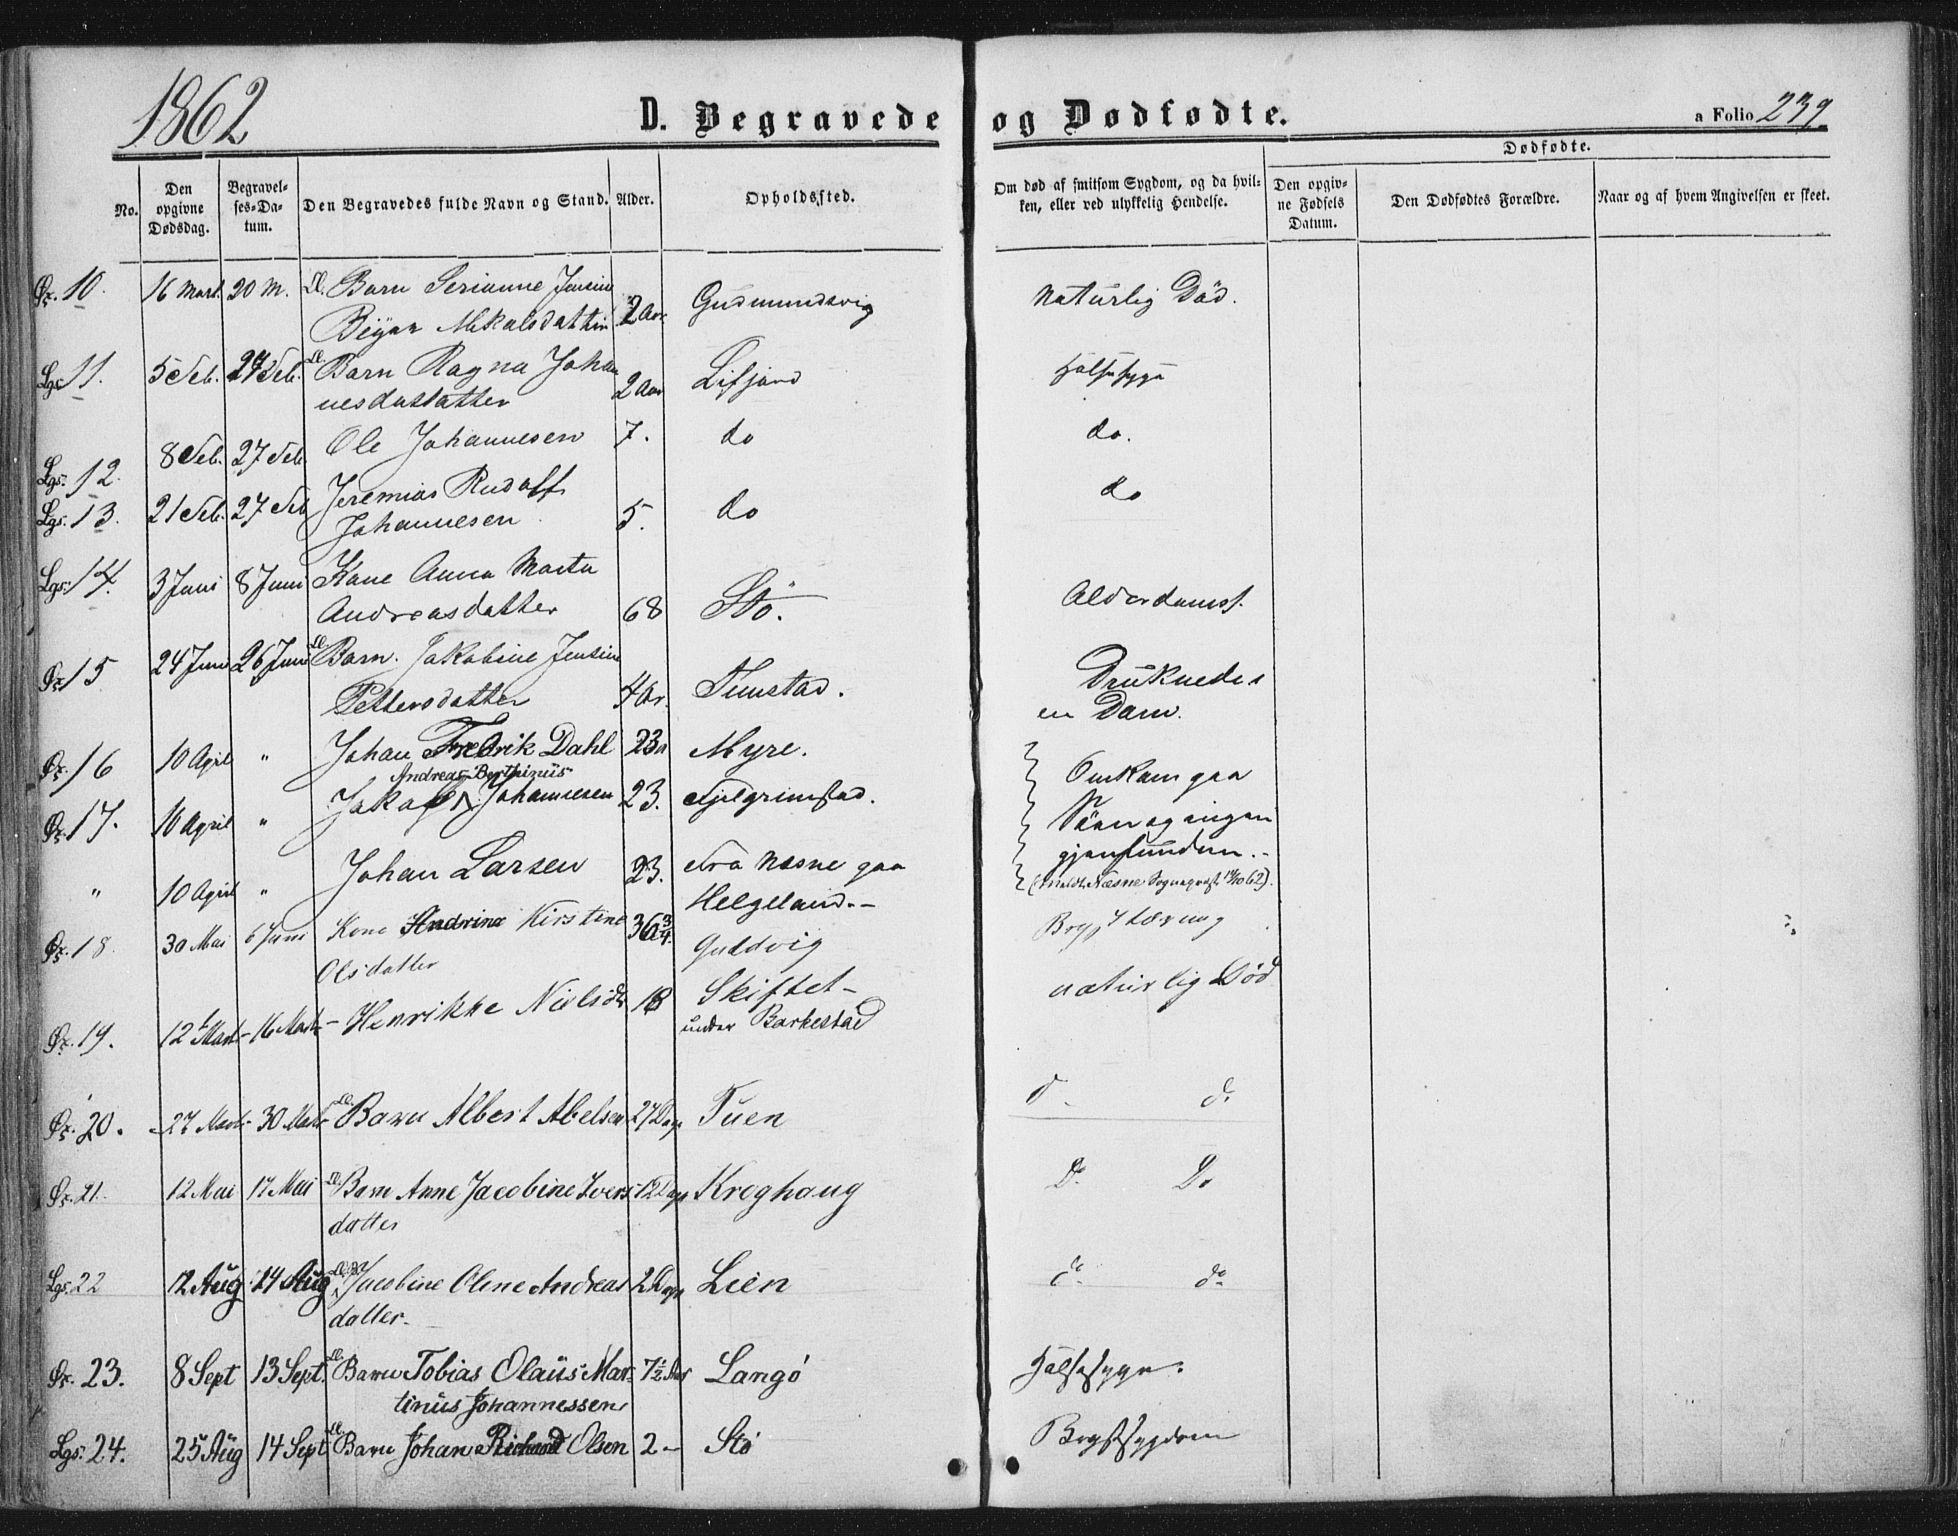 1862
D. Begravede og Dødfødte.
a Folio 239
No.
Den opgivne Dødsdag.
Begravelses-Datum.
Den Begravedes fulde Navn og Stand.
Alder.
Opholdssted.
Om død af smitsom Sygdom, og da hvilken, eller ved ulykkelig Hendelse.
Dødfødte.
Den opgivne Fødsels Datum.
Den Dødfødtes Forældre.
Naar og af hvem Angivelsen er skeet.
Øx. 10. 16 Mart. 20 M. Barn Serianne Jensine 2 Aar Gudmundsvig Naturlig Død.
Mikalsdatter
Lgs 11. 5 Feb. 27 Feb. Barn Ragna Johan 2 Aar Lifjord Halssyge
nesdatatter
Lgs. 12. 8 Feb. 27 Feb. Ole Johannesen 7. do do.
Lgs. 13. 21 Feb. 27 Feb Jeremias Rudolf 5. do do
Johannesen
Lgs. 14. 3 Juni 8 Juni Kone Anna Marta 68 Stö. Alderdomss.
Andreasdatter
Øx 15 24 Juni 26 Juni Barn. Jakobine Jensine 4 Ar. Tunstad. Druknede i
Pettersdatter en Dam.
Øx. 16 10 April " Johan Fredrik Dahl 23 Myre. Omkom paa
Andreas Berthinüs
Øx. 17. 10 April " Jakob Johannesen 23. Fjelgrimstad. Söen og ingen
gjenfunden.-
" 10 April " Johan Larsen 23. fra Næsne paa (meldt Næsne Sognepræst 62).
Helgeland.-
Øx. 18. 30 Mai 6 Juni Kone Andrine Kirstine 36 3/4. Guldvig Brysttæring
Olsdatter
Øx. 19. 12 Mart- 16 Mart- Henrikke Nielsdr 18 Skiftet- naturlig Död
under Barkestad
Øx. 20. 27 Mart- 30 Mart- Barn Albert Abelsen 27 Dage Tuen d. d.
Øx. 21. 12 Mai 17 Mai Barn Anne Jacobine Ivers- 12 Dage Kroghaug Do Do
datter
Lgs. 22 12 Aug 24 Aug Jacobine Oline Andreas 2 Dage Lien do do
datter-
Øx. 23. 8 Sept 13 Sept. Barn Tobias Olaüs Mar- 7 1/2 Aar Langó Halssyge.
tinüs Johannessen
Lgs. 24. 25 Aüg 14 Sept. Barn Johan Richard Olsen 2 - Stó Brystsygdom